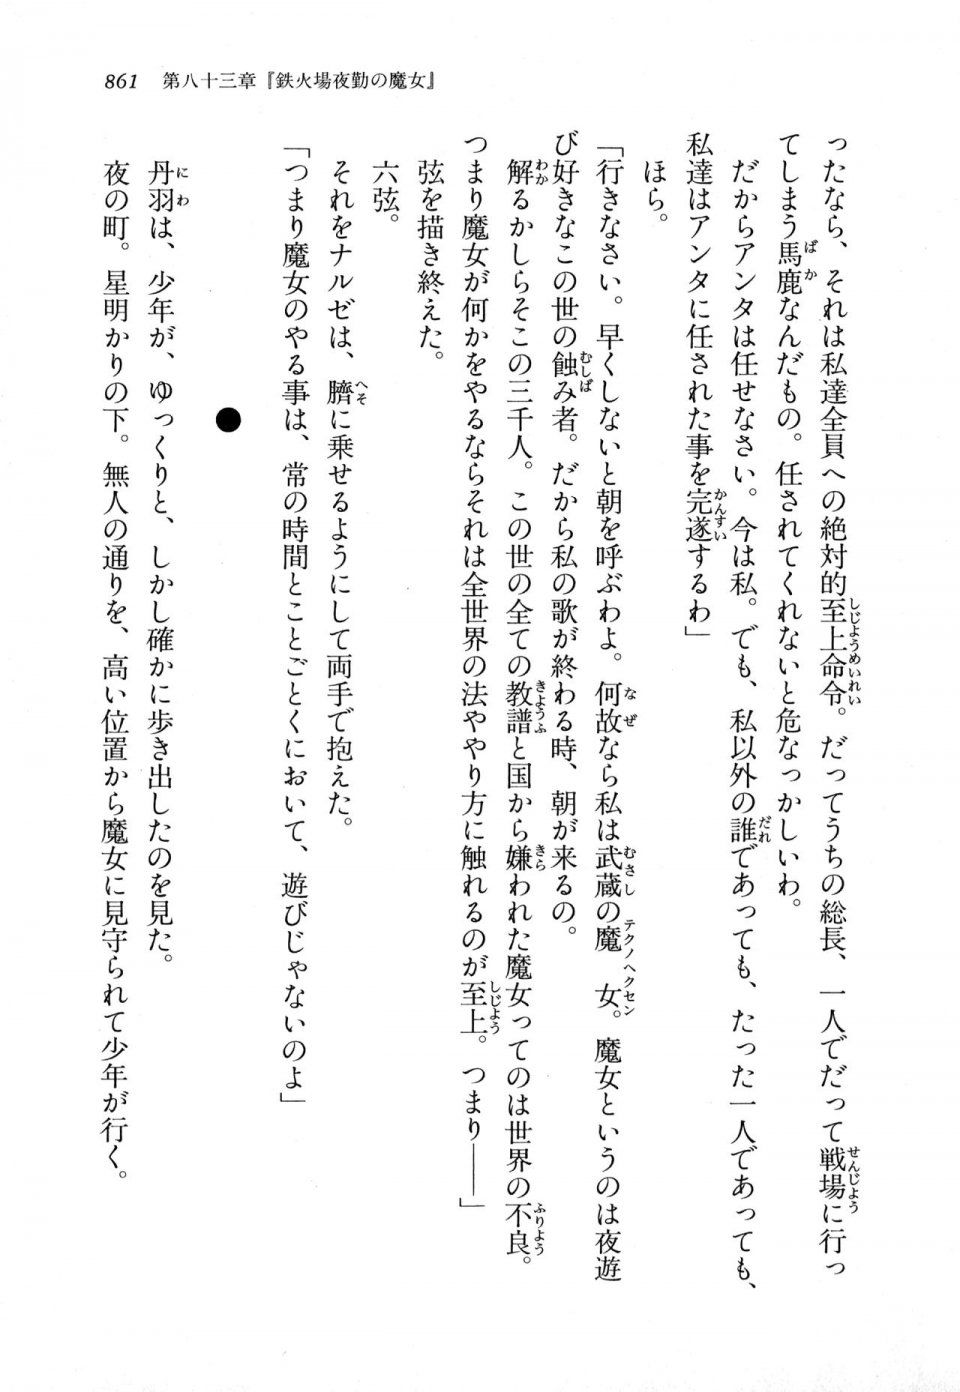 861　第八十三章『鉄火場夜勤の魔女』
ったなら、それは私達全員への絶対的至上命令。だってうちの総長、一人でだって戦場に行っ
てしまう馬鹿なんだもの。任されてくれないと危なっかしいわ。
だからアンタは任せなさい。今は私。でも、私以外の誰であっても、たった一人であっても、
私達はアンタに任された事を完遂するわ」
ほら。
「行きなさい。早くしないと朝を呼ぶわよ。何故なら私は武蔵の魔女。魔女というのは夜遊
び好きなこの世の蝕み者。だから私の歌が終わる時、朝が来るの。
解るかしらそこの三千人。この世の全ての教譜と国から嫌われた魔女ってのは世界の不良。
つまり魔女が何かをやるならそれは全世界の法ややり方に触れるのが至上。つまり――」
弦を描き終えた。
六弦。
それをナルゼは、臍に乗せるようにして両手で抱えた。
「つまり魔女のやる事は、常の時間とことごとくにおいて、遊びじゃないのよ」
●
丹羽は、少年が、ゆっくりと、しかし確かに歩き出したのを見た。
夜の町。星明かりの下。無人の通りを、高い位置から魔女に見守られて少年が行く。